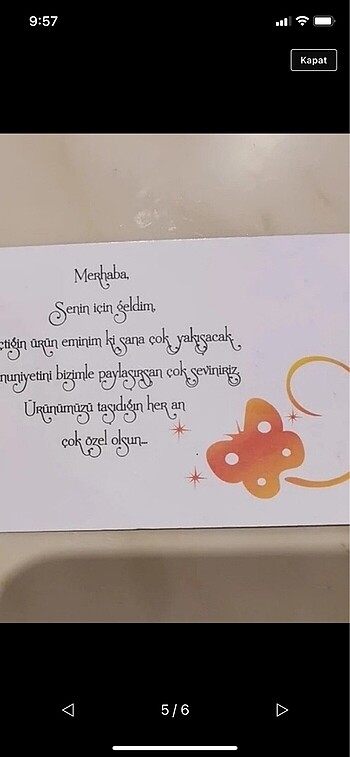 9:57
Kapat
Merhaba,
Senin için geldim,
çtiğin ürün eminim ki sana çok yakışacak.
nuniyetini bizimle paylaşırsan çok seviniriz.
Ürünümüzü taşıdığın her an
çok özel olsun...
5/6